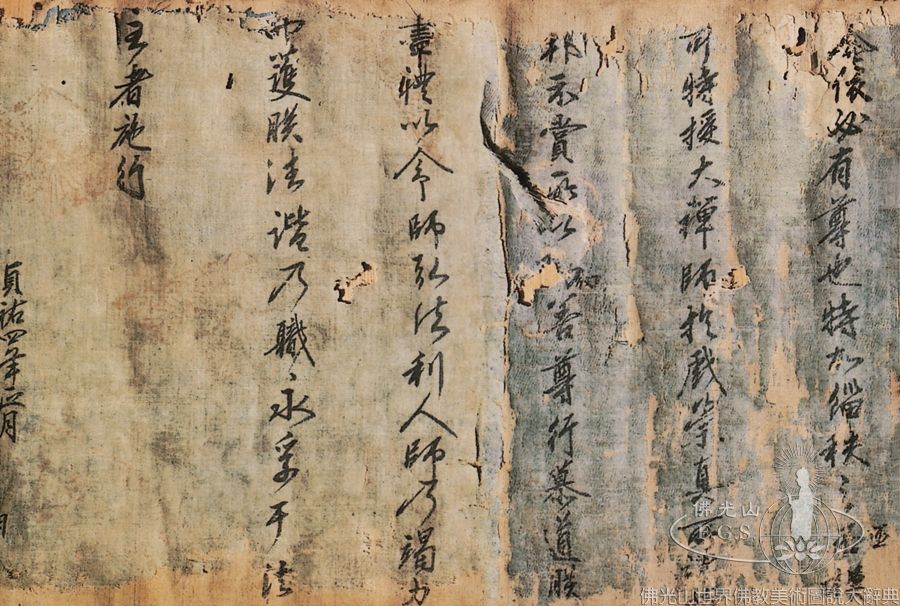 依必有尊也特加緇秩之
可特授大禪師於戲眞
非示賞所以善尊行慕道朕
盡禮以令師弘法利人師乃竭力
而護朕法諧乃職永孚于法
主者施行
貞祐四年正月
佛光山
F.G.S.
佛光山世界佛教美術圖說大辭典